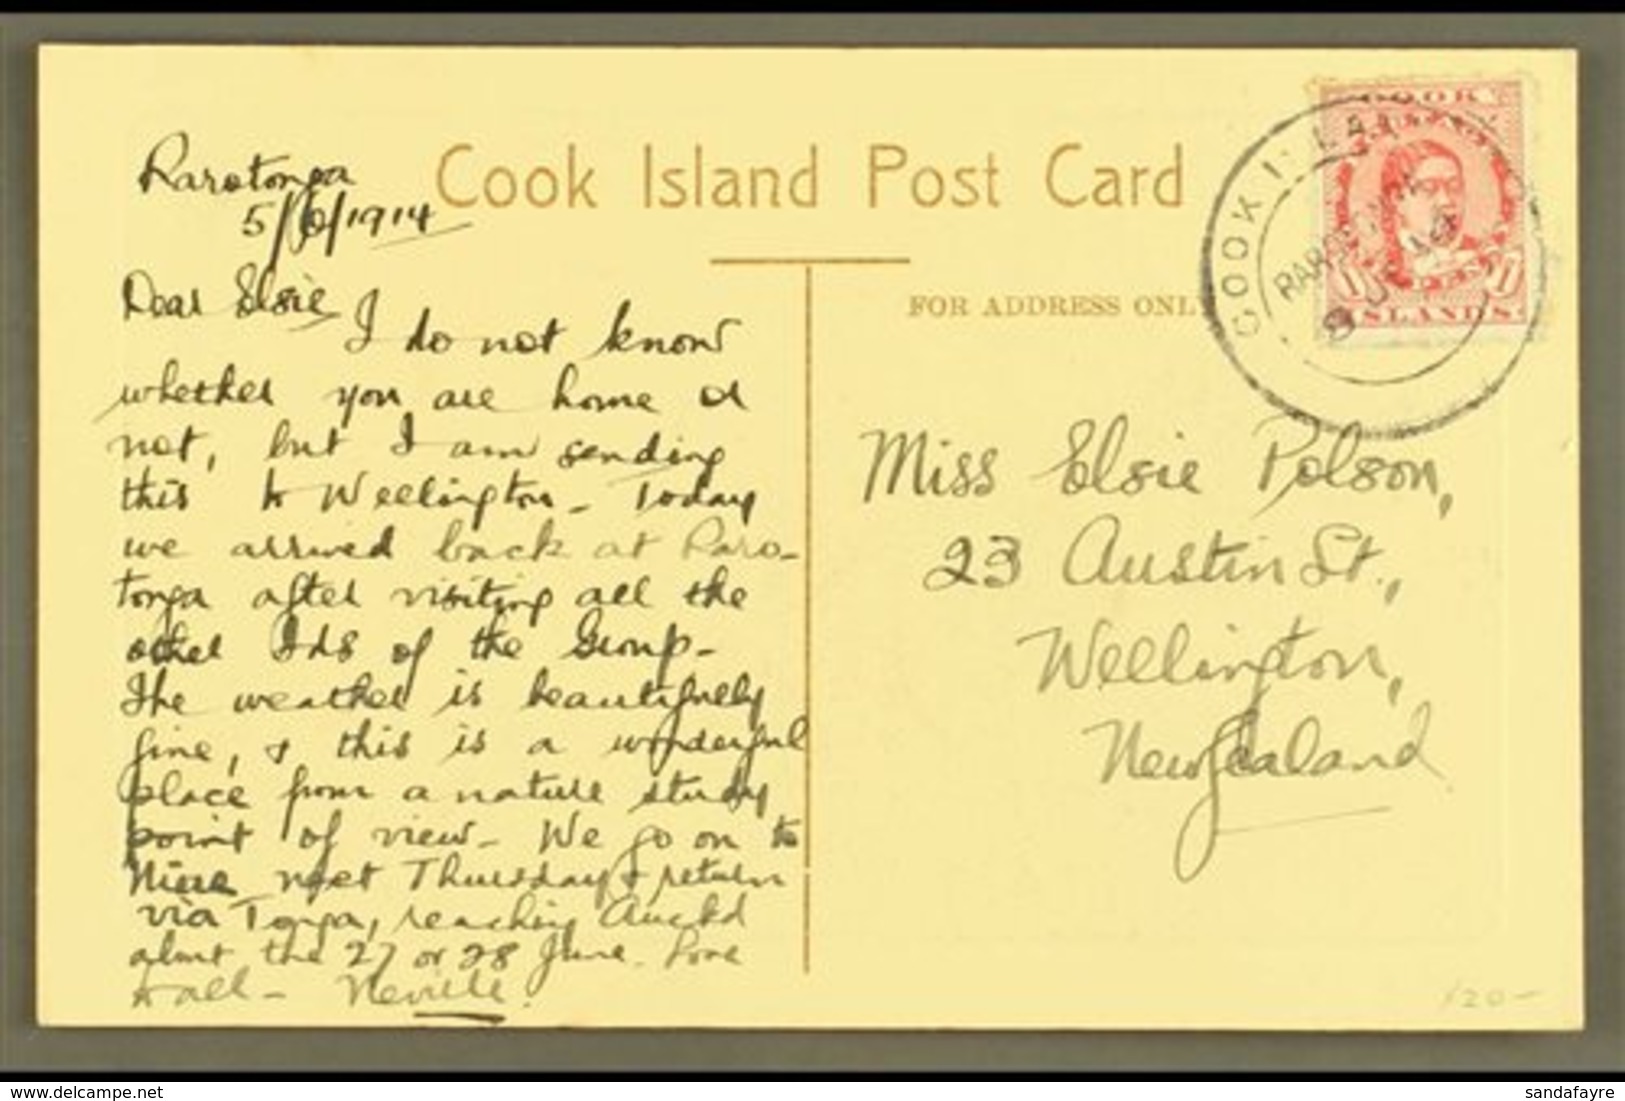 Cook Island Post Card
Rarotonga
5/6/1914
FOR ADDRESS ONLY
Dear Elsie
I do not know
whether you are home or
not, but I am sending
this to Wellington - Today
we arrived back at Raro-
tonga after visiting all the
other Ids of the Group -
The weather is beautifully
fine, & this is a wonderful
place from a nature study
point of view - We go on to
Niue next Thursday & return
via Tonga, reaching Auckd
about the 27 or 28 June. Love
to all - Neville.
COOK
ISLANDS
COOK ISLAN
RAROTONGA
8 JE 14
Miss Elsie Polson,
23 Austin St.,
Wellington,
New Zealand
120-
delcampe.net
sandafayre